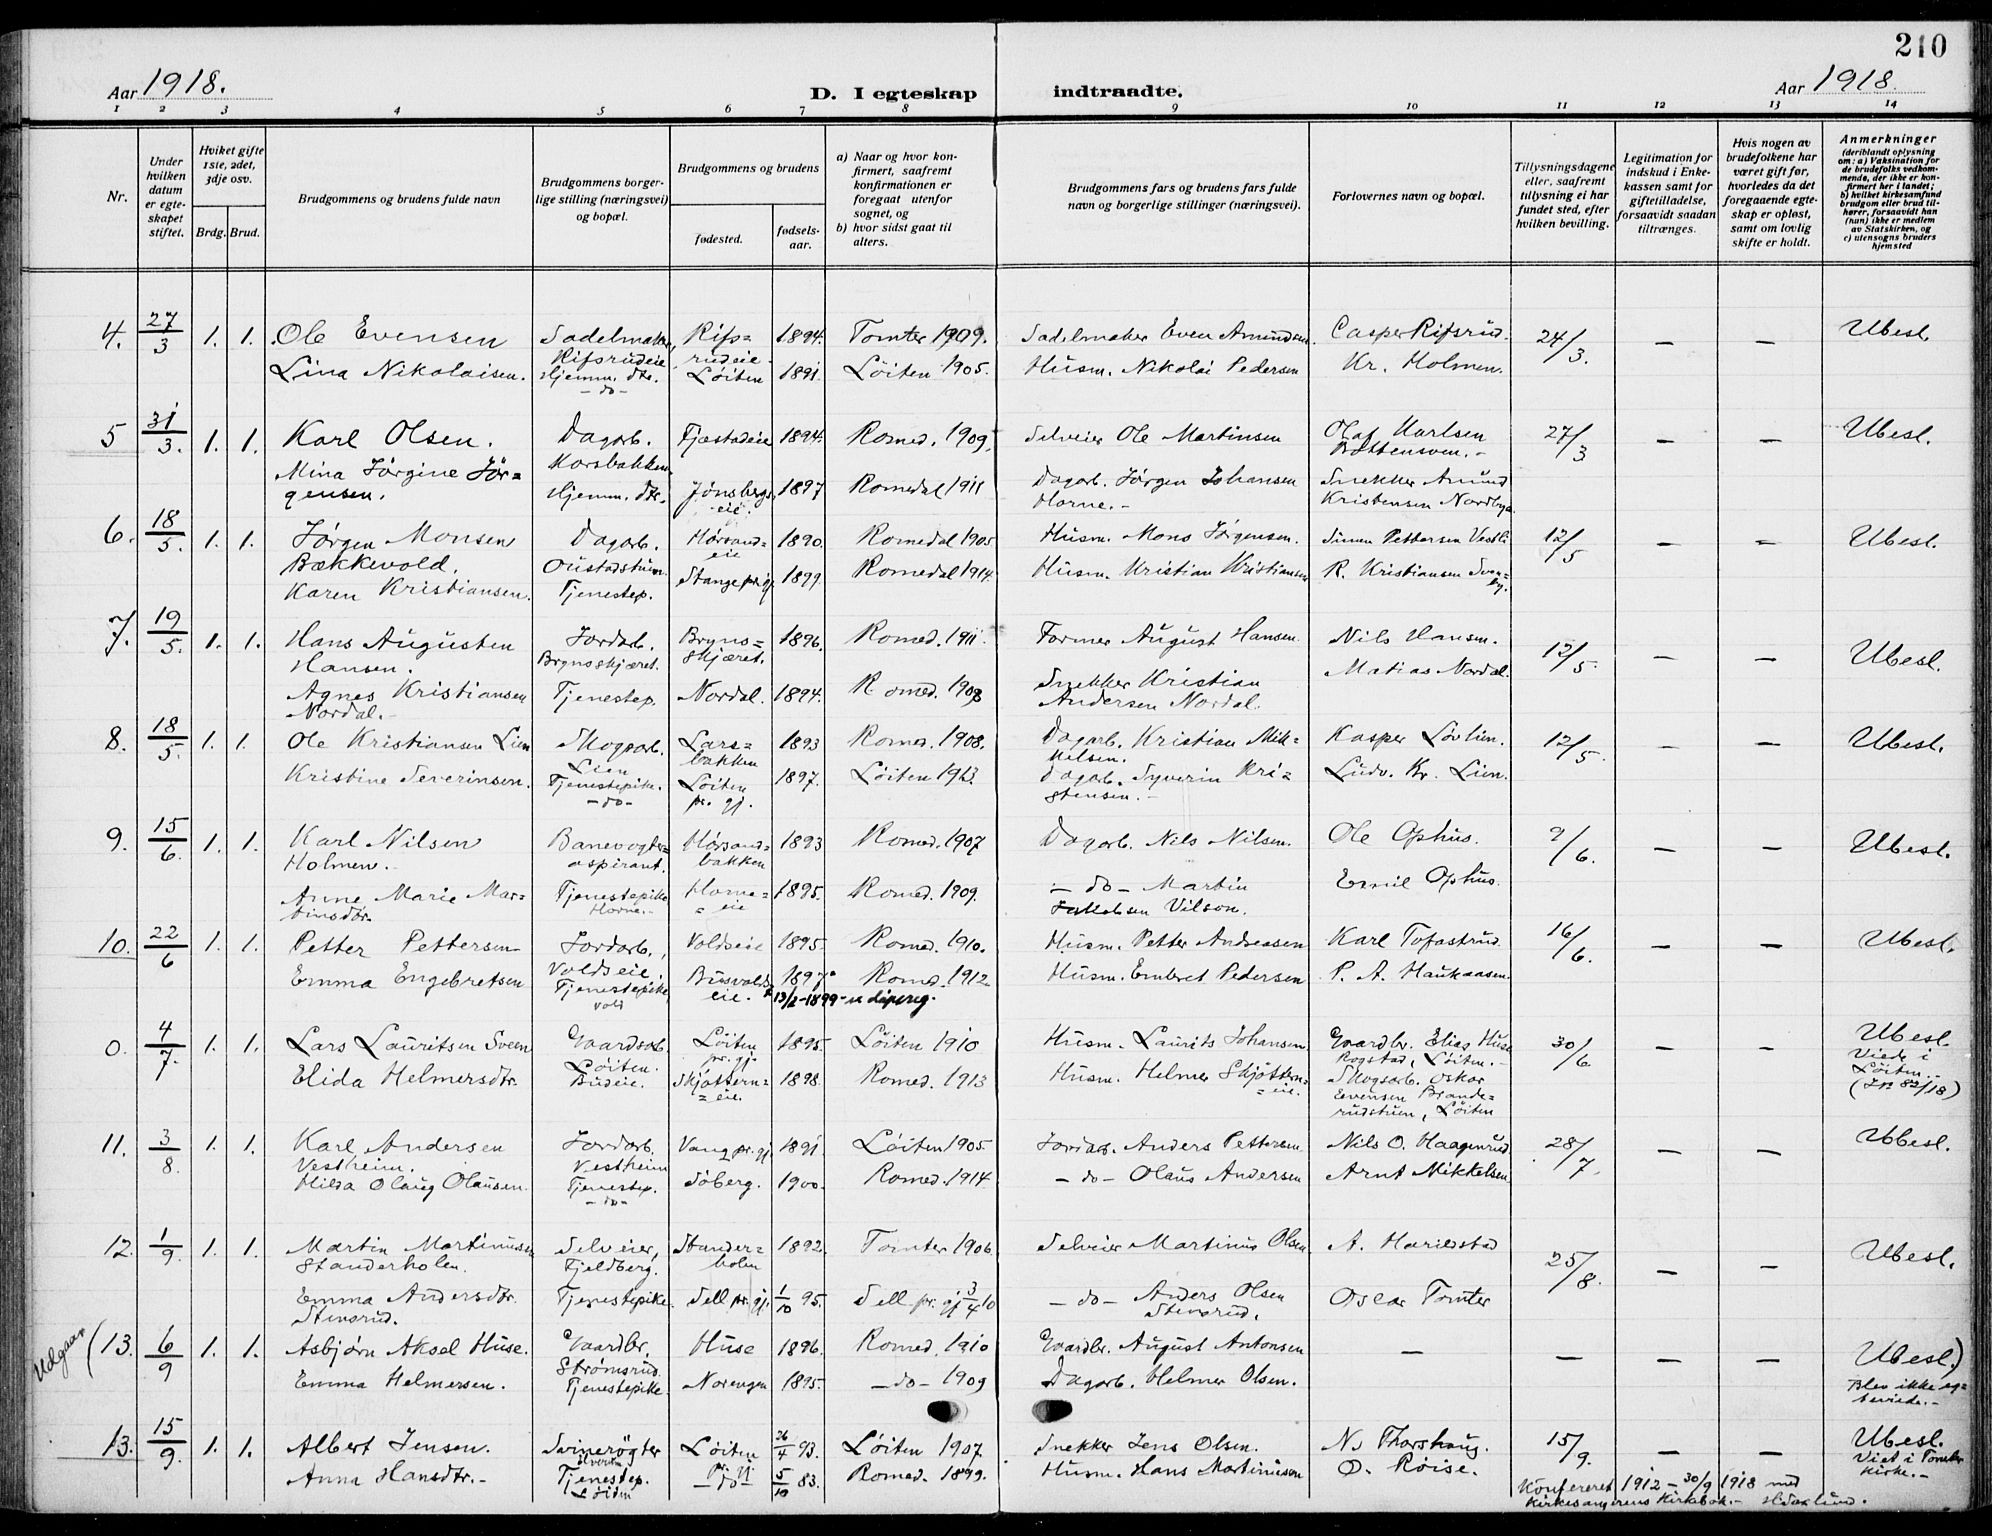 210
Aar 1918.
D. I egteskap indtraadte.
Aar 1918.
1 2 3 4 5 6 7 8 9 10 11 12 13 14
Nr.
Under hvilken datum er egteskapet stiftet.
Hviket gifte 1ste, 2det, 3dje osv.
Brdg. Brud.
Brudgommens og brudens fulde navn
Brudgommens borgerlige stilling (næringsvei) og bopæl.
Brudgommens og brudens
fødested.
fødselsaar.
a) Naar og hvor konfirmert, saafremt konfirmationen er foregaat utenfor sognet, og
b) hvor sidst gaat til alters.
Brudgommens fars og brudens fars fulde navn og borgerlige stillinger (næringsvei).
Forlovernes navn og bopæl.
Tillysningsdagene eller, saafremt tillysning ei har fundet sted, efter hvilken bevilling.
Legitimation for indskud i Enkekassen samt for giftetilladelse, forsaavidt saadan tiltrænges.
Hvis nogen av brudefolkene har været gift før, hvorledes da det foregaaende egteskap er opløst, samt om lovlig skifte er holdt.
Anmerkninger
(deriblandt oplysning om: a) Vaksination for de brudefolks vedkommende, der ikke er konfirmert her i landet; b) hvilket kirkesamfund brudgom eller brud tilhører, forsaavidt han (hun) ikke er medlem av Statskirken, og c) utensogns bruders hjemsted
4. 27/3 1. 1. Ole Evensen Sadelmaker Rifsrudeie Rifsrudeie 1894. Tomter 1909. Sadelmaker Even Amundsen Casper Rifsrud. 24/3. — — Ubesl.
Lina Nikolaisen. Hjemm. dtr. -do- Løiten 1891 Løiten 1905. Husm. Nikolai Pedersen Kr. Holmen.
5 31/3. 1. 1. Karl Olsen. Dagarb. Korsbakken Fjæstadeie 1894. Romed. 1909. Selveier Ole Martinsen Olaf Karlsen 27/3 — — Ubesl.
Mina Jørgine Jørgensen. Hjemm. dtr. Jønsbergs eie. 1897 Romedal 1911 Dagarb. Jørgen Johansen Horne.- Snekker Amund Kristensen Nordbye
6. 18/5. 1. 1. Jørgen Monsen Bækkevold. Dagarb. Oustadstuen Hørsandeie 1890. Romedal 1905 Husm. Mons Jørgensen. Simen Pettersen 12/5 — — Ubesl.
Karen Kristiansen. Tjenestep. Stange pr.gj. 1899 Romedal 1914. Husm. Kristian Kristiansen R. Kristiansen
7. 19/5. 1. 1. Hans Augusten Hansen. Jordarb. Brynsskjæret. Brynsskjæret. 1896. Romed. 1911. Former August Hansen. Nils Hansen. 12/5. — — Ubesl.
Agnes Kristiansen Nordal.- Tjenestep. Nordal. 1894. Romed. 1908 Snekker Kristian Andersen Nordal. Matias Nordal.
8. 18/5. 1. 1. Ole Kristiansen Lien Skogsarb. Lien Larsbakken 1893 Romed. 1908. Dagarb. Kristian Mikkelsen. Kasper Løvlien. 12/5. — — Ubesl.
Kristine Severinsen. Tjenestepike. -do- Løiten pr. gj. 1897. Løiten 1913. Dagarb. Syverin Kristensen.- Ludv. Kr. Lien.
9. 15/6. 1. 1. Karl Nilsen Holmen.- Banevogteraspirant. Hørsandbakken 1893 Romed. 1907 Dagarb. Nils Nilsen. Ole Ophus. 9/6. — — Ubesl.
Anne Marie Martinsdtr. Tjenestepike Horne.- Horneeie 1895. Romed. 1909. -do- Martin Jakobsen Vilson. Emil Ophus.
10. 22/6 1. 1. Petter Pettersen Jordarb., Voldseie. Voldseie 1895. Romed. 1910. Husm. Petter Andreasen Karl Tofastrud 16/6. — — Ubesl.
Emma Engebretsen Tjenestepike vold Busvolds eie. 1897 Romed. 1912. Husm. Embret Pedersen P. A. Haukaasen.
13/2-1899
0. 4/7. 1. 1. Lars Lauritsen Sveen Gaardsarb. Løiten. Løiten pr. gj. 1895. Løiten 1910 Husm. Laurits Johansen. Gaardbr. Elias Huse Rogstad, Løiten.- 30/6. — — Ubesl. Viede i Løiten.-
Elida Helmersdtr. Budeie. Skjøtterneie. 1898. Romed. 1913 Husm. Helmer Skjøtterneie. Skogsarb. Oskar Evensen Branderudstuen, Løiten
11. 3/8. 1. 1. Karl Andersen Vestheim. Jordarb. Vestheim Vang pr.gj. 1891 Løiten 1905. Jordarb. Anders Pettersen. Nils O. Haagenrud 28/7. — — Ubesl.
Hilda Olaug Olausen. Tjenestep. -do- Søberg. 1900. Romed. 1914. -do- Olaus Andersen Arnt Mikkelsen.
12. 1/9. 1. 1. Martin Martinussen Standerholen. Selveier, Fjeldberg. Standerholen 1892. Tomter 1906. Selveier Martinus Olsen A. Harildstad 25/8. — — Ubesl.
Emma Andersdtr. Stensrud. Tjenestepike. Sell pr. gj. 1/10 95. Sell pr. gj. 3/4 10 -do- Anders Olsen Stensrud. Oscar Tomter
Udgaar (13. 6/9 1. 1. Asbjørn Aksel Huse. Gaardbr. Strømsrud. Huse 1896. Romed. 1910 Gaardbr. August Antonsen — — — — Ubesl.)
Emma Helmersen. Tjenestepike. Norengen 1895. -do- 1909 Dagarb. Helmer Olsen. Blev ikke egteviede.-
13. 15/9. 1. 1. Albert Jensen. Svinerøgter Løiten 26/4 93. Løiten 1907. Snekker Jens Olsen. N. Thorshaug. 15/9. — — Ubesl. Viet i Tomter kirke.-
Anna Hansdtr.- Tjenestep. Løiten -do- 5/10 83. Romed. 1899. Husm. Hans Martinusen O. Røise.
Konfereret 1912 - 30/9 1918 med
Kirkesangerens Kirkebok.-